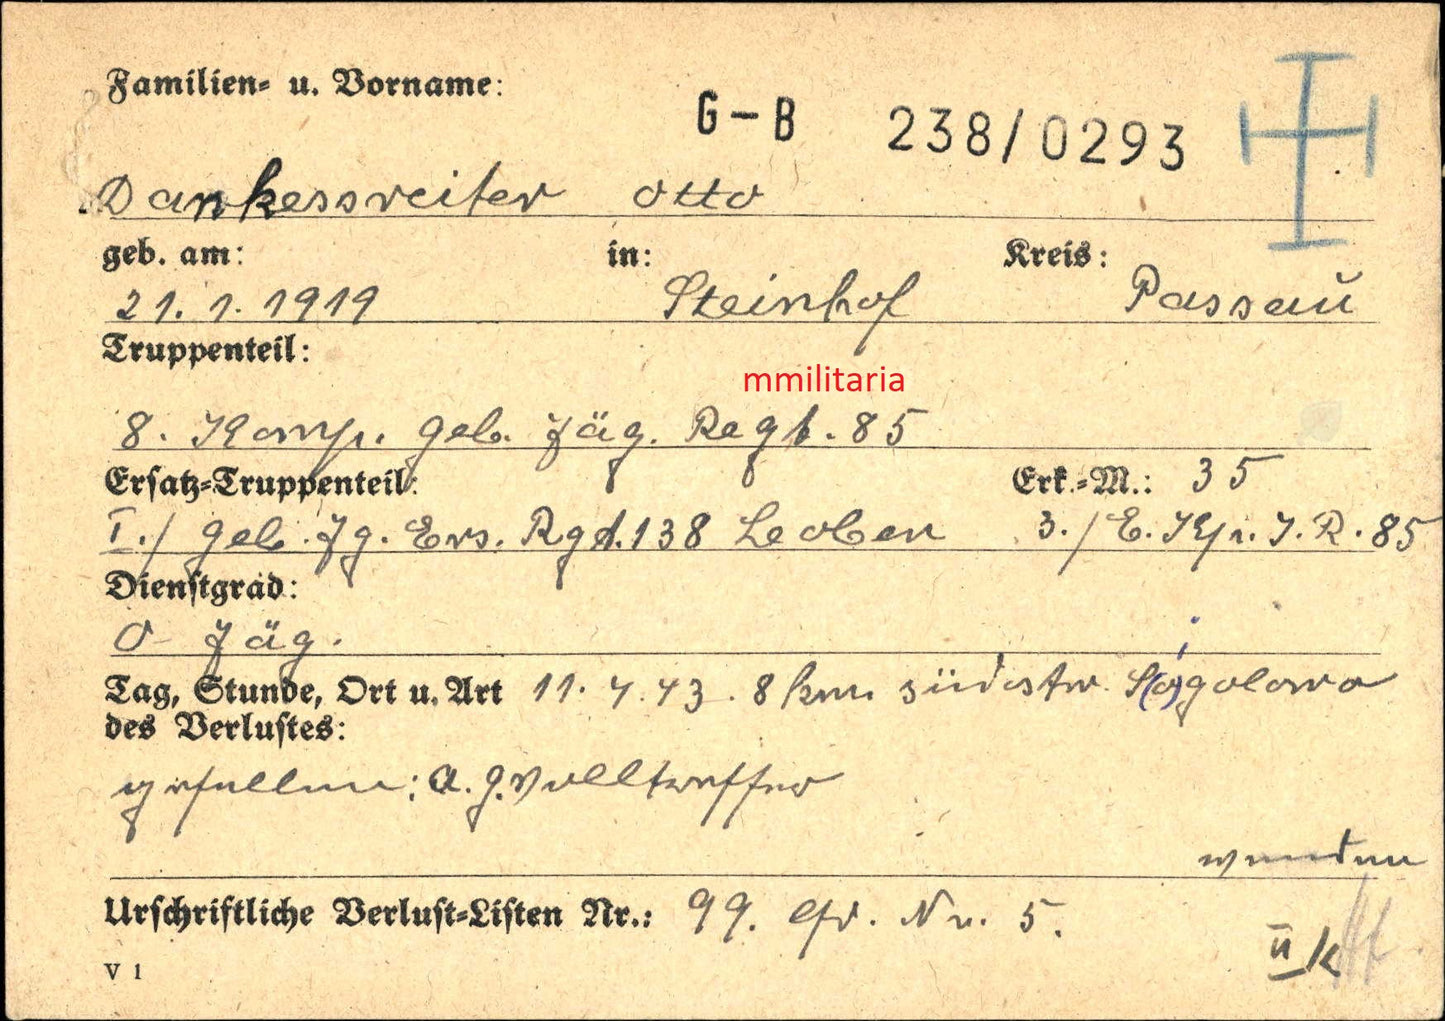 Familien- u. Vorname:
G-B 238/0293
Dankessreiter Otto
geb. am: in: Kreis:
21. 1. 1919 Steinhof Passau
Truppenteil:
mmilitaria
8. Komp. Geb. Jäg. Regt. 85
Ersatz-Truppenteil: Erk.-M.: 35
I./ Geb. Jg. Ers. Rgt. 138 Leoben 3./E. Kp. I. R. 85
Dienstgrad:
O Jäg.
Tag, Stunde, Ort u. Art 11. 4. 43. 8 km südostw.
des Verlustes:
gefallen: A. G. Volltreffer
wenden
Urschriftliche Verlust-Listen Nr.: 99. lfd. Nr. 5.
II K
V 1